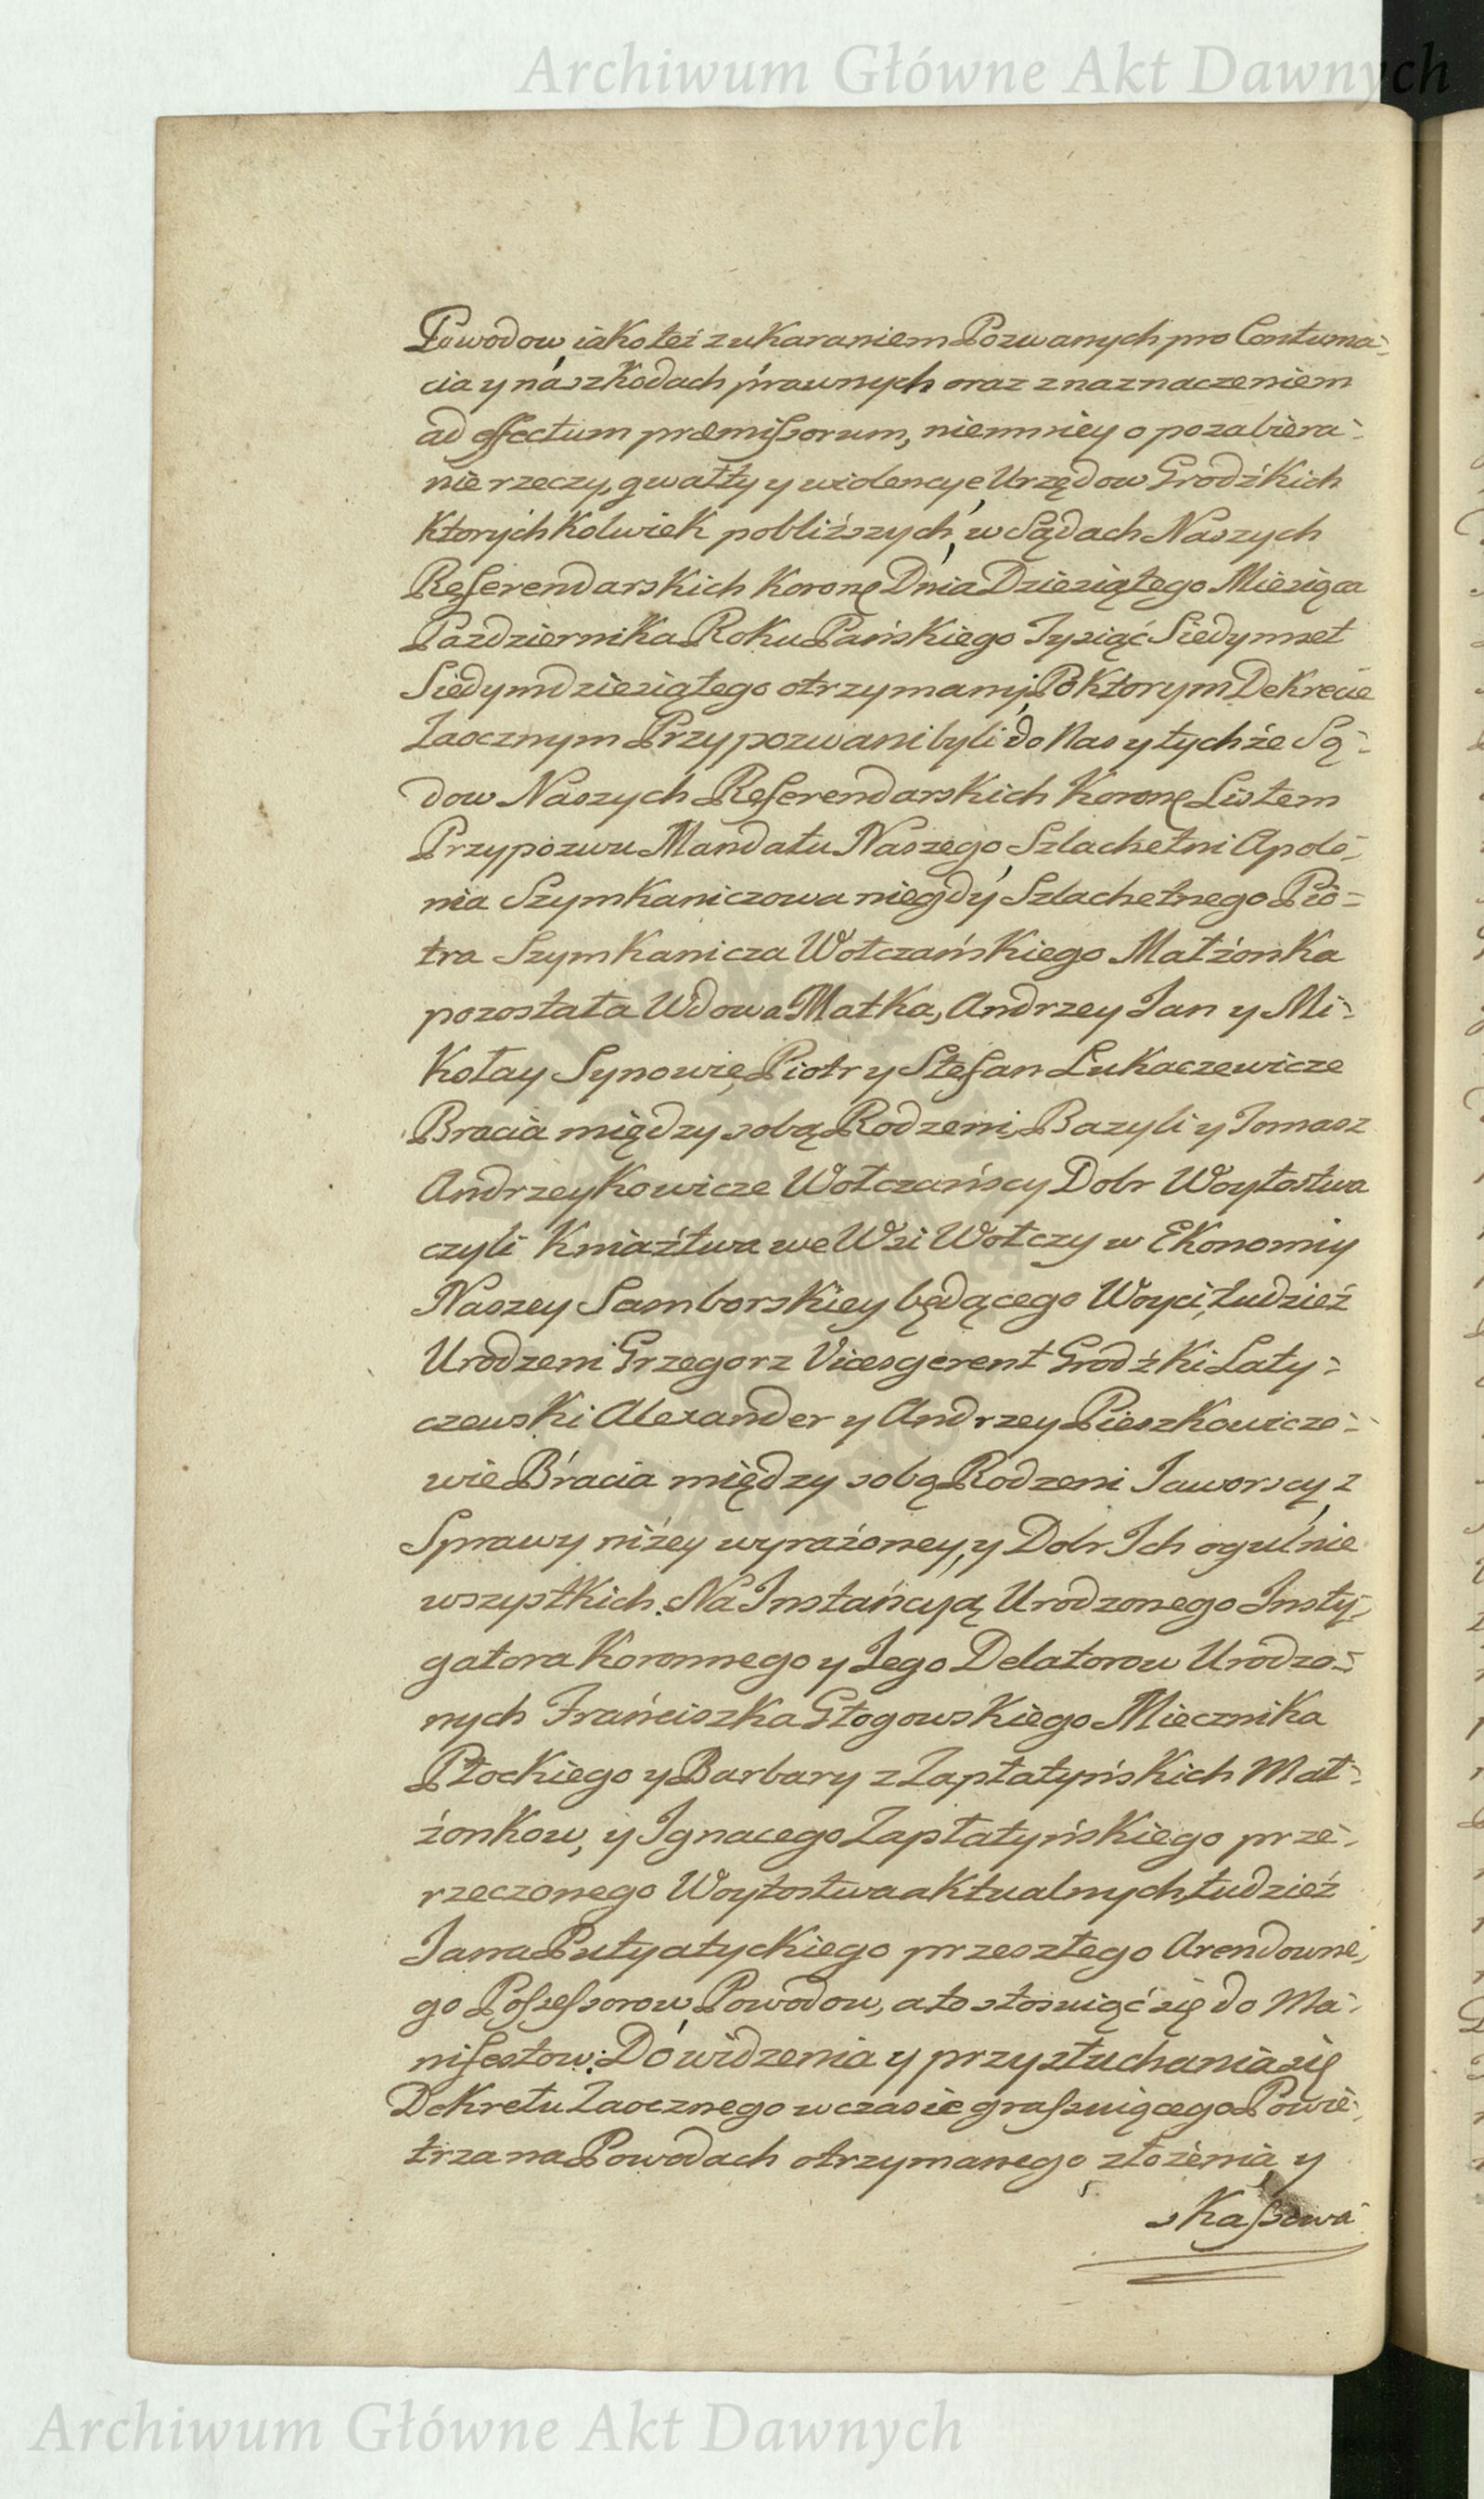 Archiwum Główne Akt Dawnych
Powodow, iako też z ukaraniem Pozwanych pro Contuma-
cia y na szkodach prawnych oraz z naznaczeniem
ad effectum præmissorum, niemniey o pozabiera-
nie rzeczy, gwałty y widencye Urzędow Grodzkich
Ktorychkolwiek pobliższych, w Sądach Naszych
Referendarskich Koronę Dnia Dziesiątego Miesiąca
Pazdziernika Roku Pańskiego Tysiąć Siedymset
Siedymdziesiątego otrzymany; Po Ktorym Dekrecie
Zaocznym Przypozwani byli do Nas y tychże Są-
dow Naszych Referendarskich Koronę Listem
Przypozwu Mandatu Naszego, Szlachetni Apolo-
nia Szymkaniczowa niegdy Szlachetnego Pio-
tra Szymkanicza Wołczańskiego Małżonka
pozostała Wdowa Matka, Andrzey Jan y Mi-
kołay Synowie, Piotr y Stefan Lukaczewicze
Bracia między sobą Rodzeni, Bazyli y Tomasz
Andrzeykowicze Wołczańscy Dobr Woytostwa
czyli Kniaźtwa we Wsi Wołczy w Ekonomiy
Naszey Samborskiey będącego Woyci, tudzież
Urodzeni Grzegorz Vicesgerent Grodźki Laty-
czewski Alexander y Andrzey Pieszkowiczo-
wie Bracia między sobą Rodzeni Jaworscy, z
Sprawy niżey wyrażoney, y Dobr Ich ogulnie
wszystkich. Na Instańcyą Urodzonego Insty-
gatora Koronnego y Jego Delatorow Urodzo-
nych Frańciszka Głogowskiego Miecznika
Płockiego y Barbary z Zapłatyńskich Mał-
żonkow, y Ignacego Zapłatyńskiego prze-
rzeczonego Woytostwa aktualnych, tudzież
Jana Putyatyckiego przeszłego Arendowne-
go Possessorow, Powodow, a to stosuiąć się do Ma-
nifestow: Do widzenia y przysłuchania się
Dekretu Zaocznego w czasie grassuiącego Powie-
trza na Powodach otrzymanego złożenia y
skassowa-
Archiwum Główne Akt Dawnych